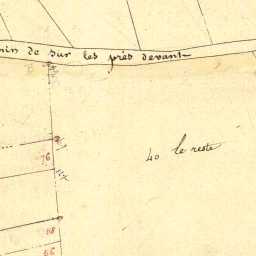 min de sur les prés devant
40 le reste
76
117
68
66